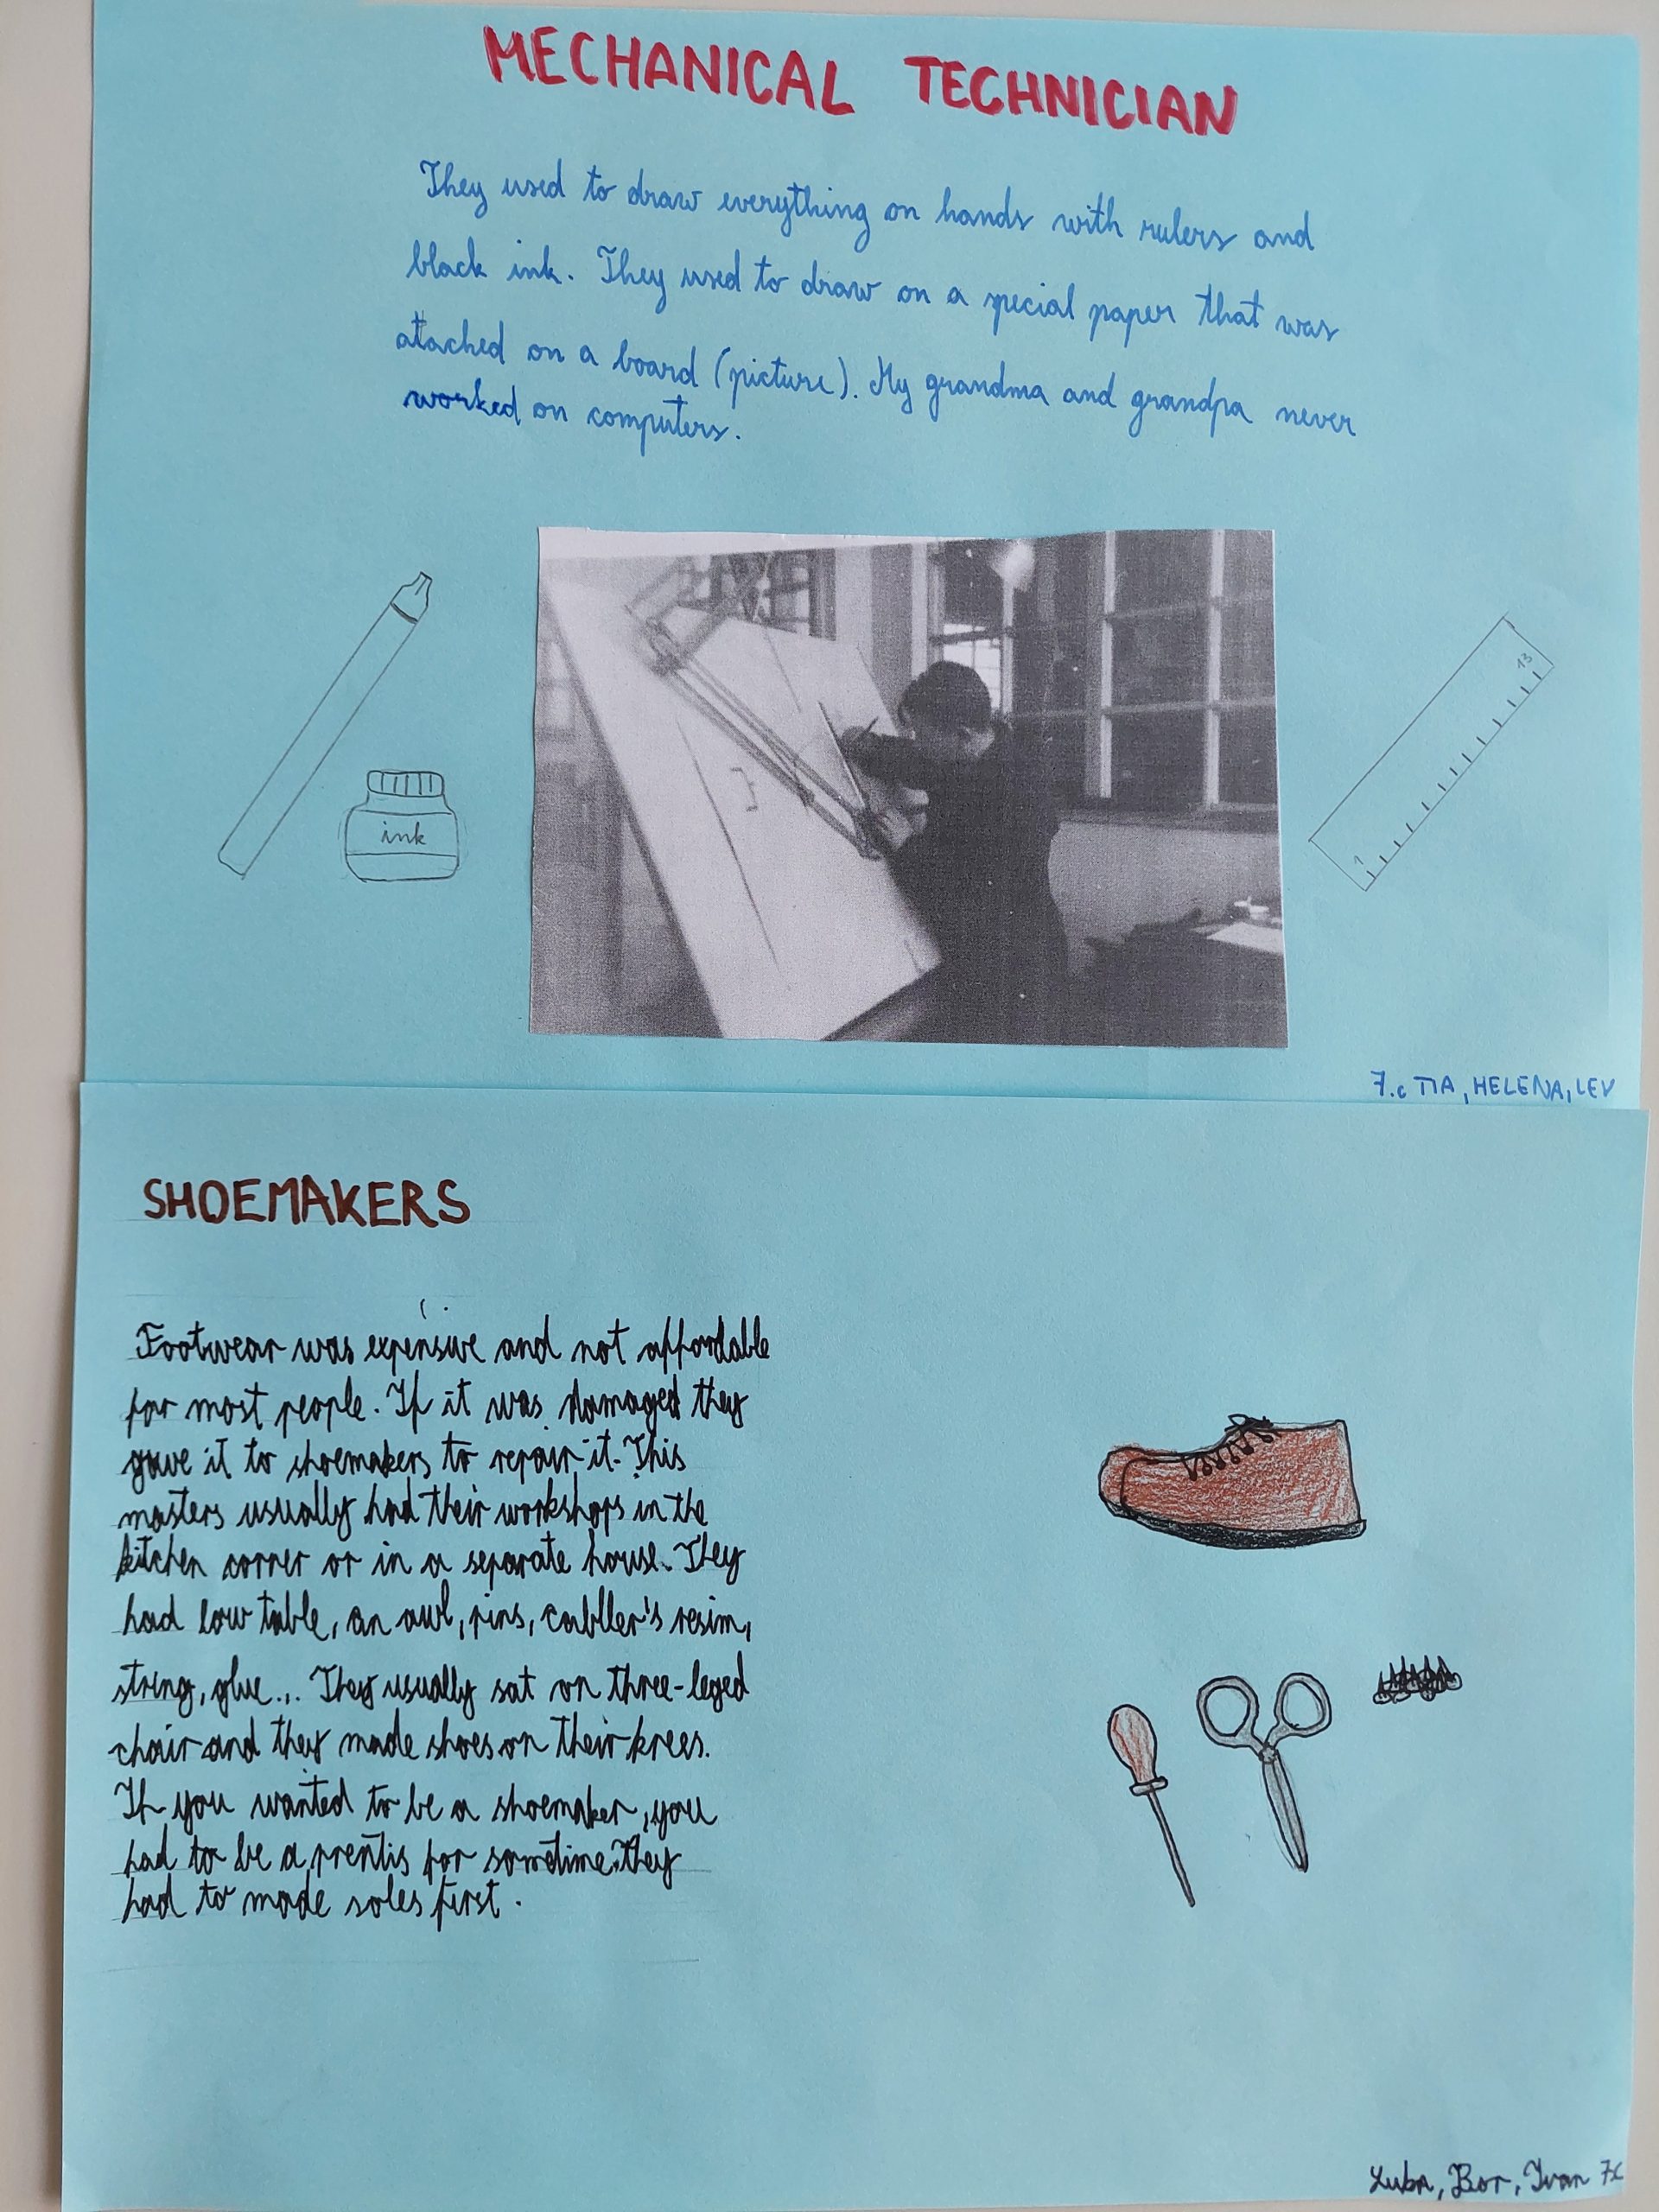 MECHANICAL TECHNICIAN
They used to draw everything on hands with rulers and
black ink. They used to draw on a special paper that was
attached on a board (picture). My grandma and grandpa never
worked on computers.
ink
13
1
7.c TIA, HELENA, LEV
SHOEMAKERS
Footwear was expensive and not affordable
for most people. If it was damaged they
gave it to shoemakers to repair it. This
masters usually had their workshops in the
kitchen corner or in a separate house. They
had low table, an awl, pins, cabller's resim,
string, glue... They usually sat on three-leged
chair and they made shoes on their knees.
If you wanted to be a shoemaker, you
had to be a prentis for sometime. They
had to made soles first.
Bor, Ivan 7c